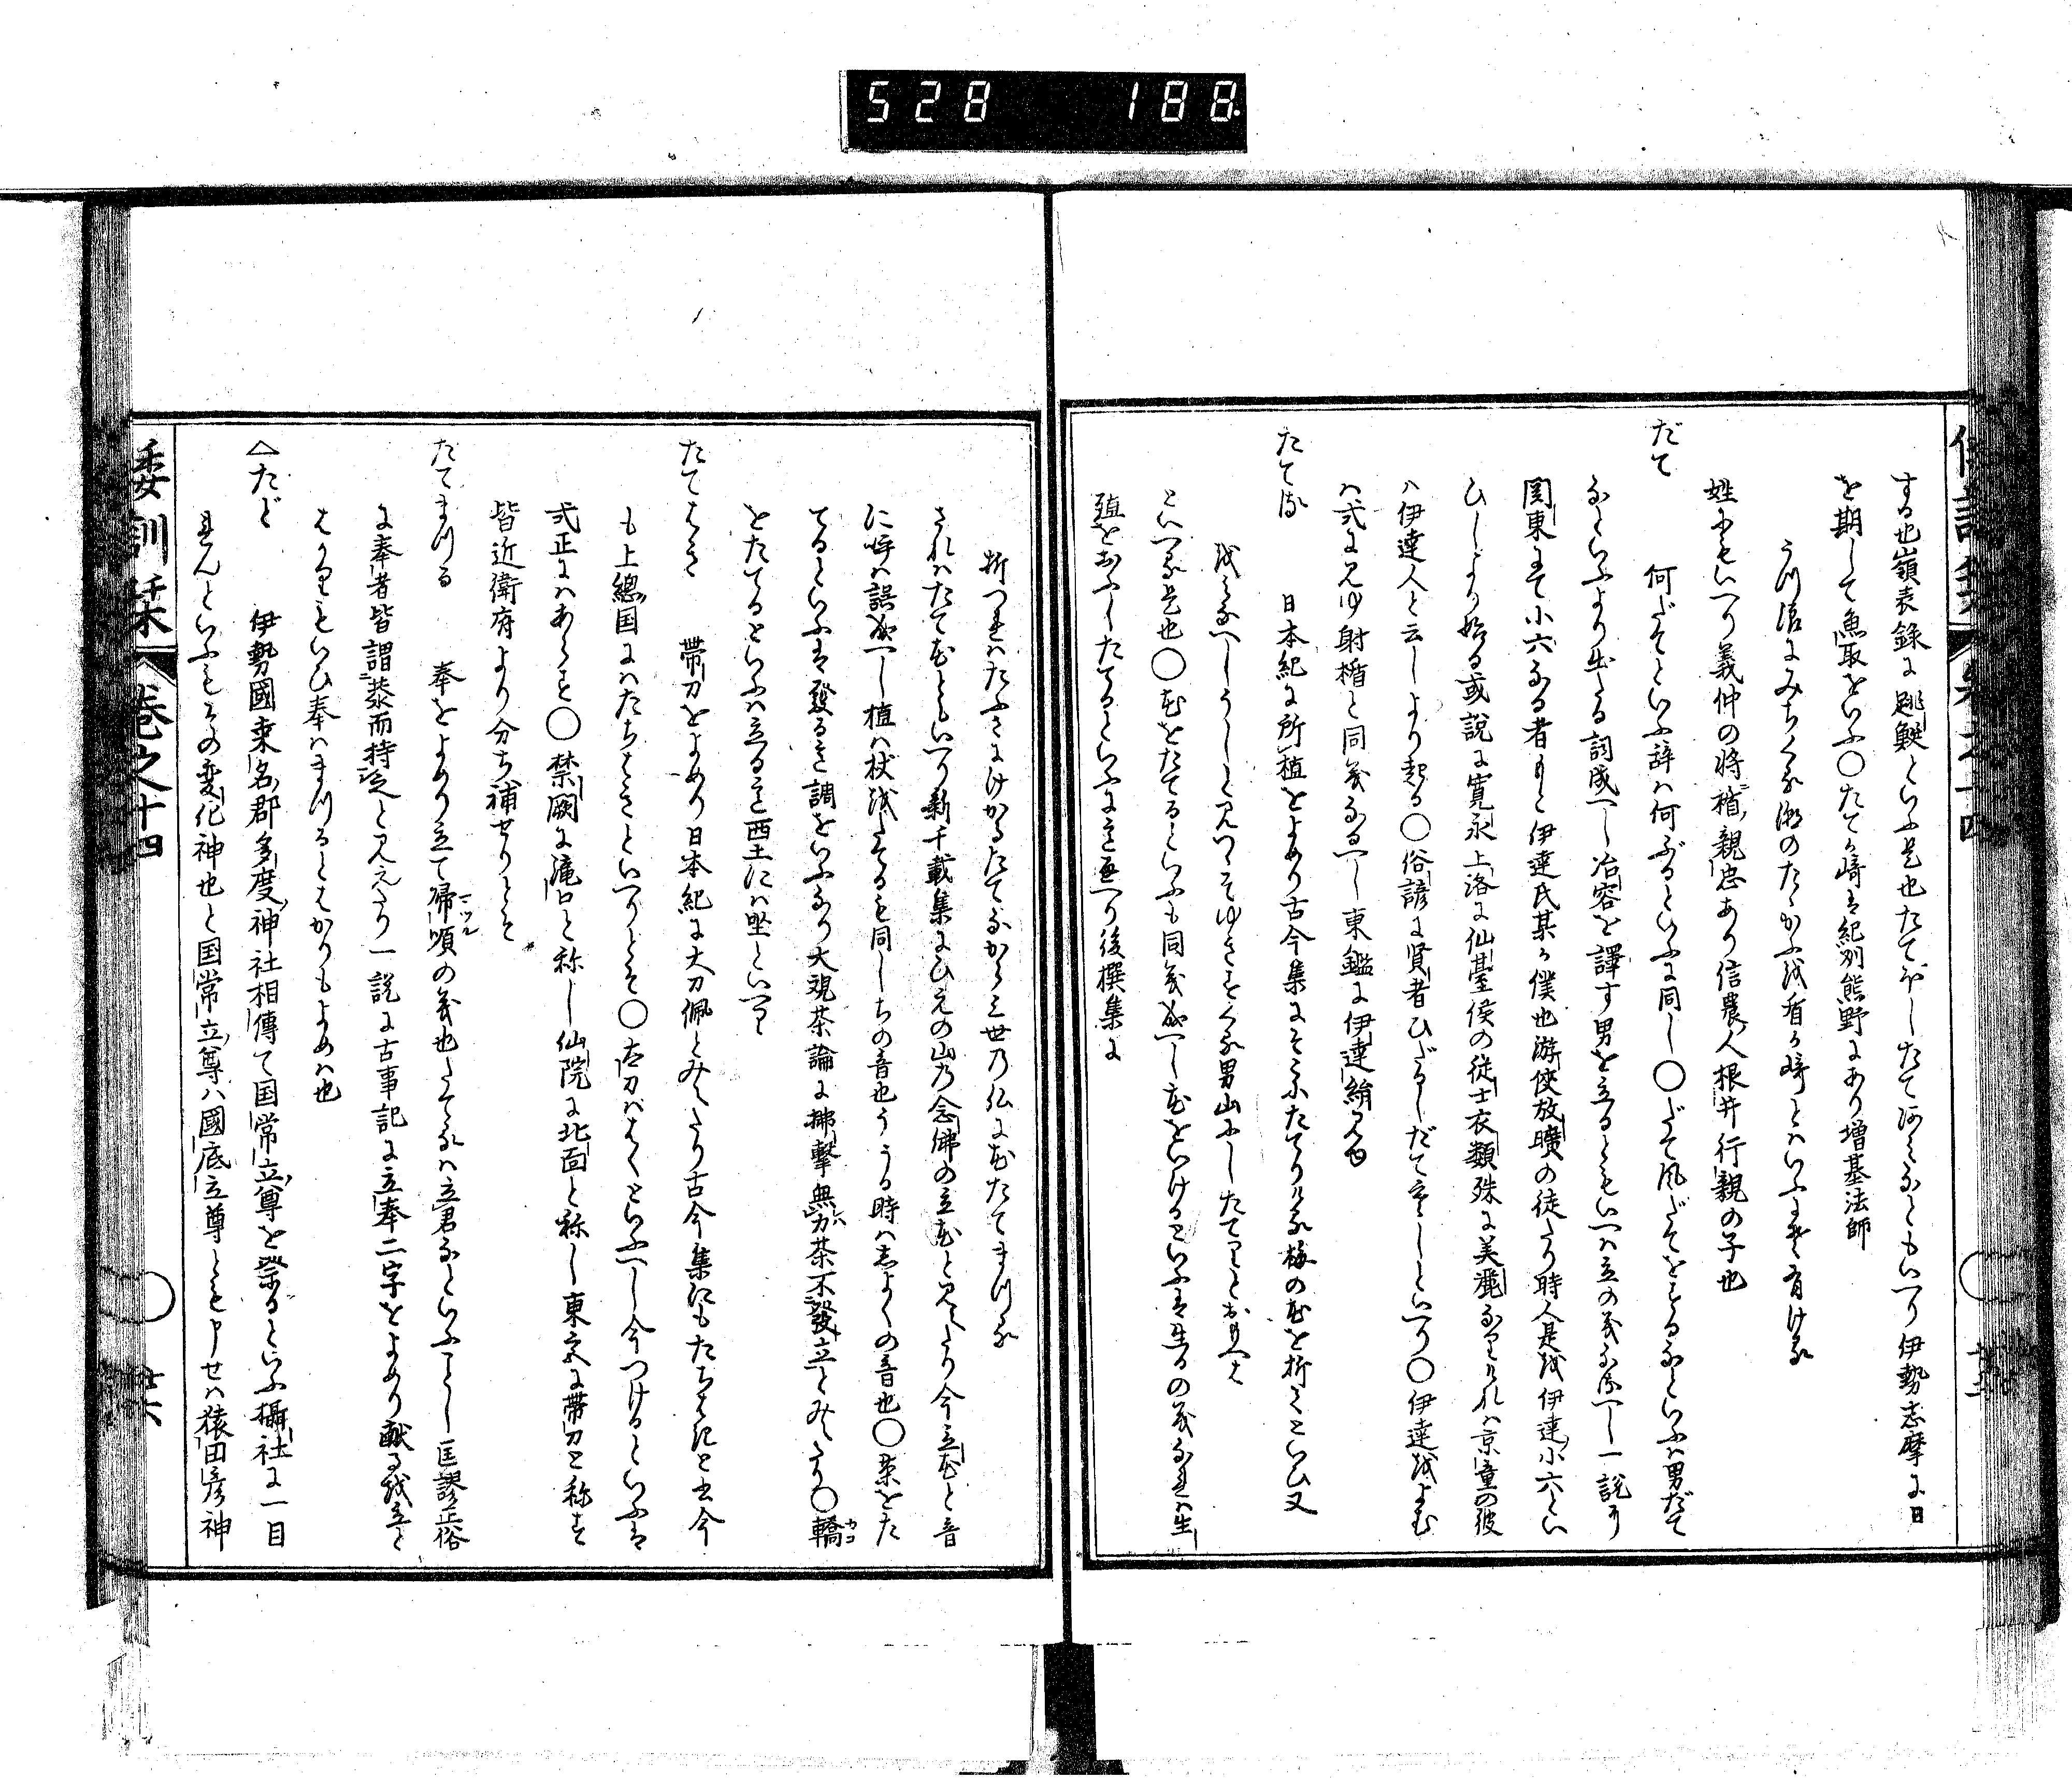 528 188
する也嶺表録に跳鮏といふ是也たてぼしたてあみなともいへり伊勢志摩に日
を期して魚取をいふ〇たてが崎は紀州熊野にあり増基法師
うら浪にみちくる潮のたゝかふを看か崎とはいふにそ有ける
姓にもいへり義仲の将楯親忠あり信濃人根井行親の子也
だて 何だてといふ辞は何ぶるといふに同し〇だて風だてをするなといふは男だて
なといふより出る詞成へし冶容を譯す男を立るともいへは立の義なるへし一説に
関東にて小六なる者もと伊達氏某か僕也游侠放曠の徒たり時人是を伊達小六とい
ひしより始る或説に寛永上洛に仙臺侯の徒士衣類殊に美麗なりけれは京童の彼
は伊達人と云しより起る〇俗諺に賢者ひだるしだて寒しといへり〇伊達をよむ
は式に見ゆ射楯と同義なるへし東鑑に伊達絹見ゆ
たてる 日本紀に所植をよめり古今集にそこにたてりける梅の花を折てといひ又
をみなへしうしと見つゝそゆきすくる男山にしたてりとおもへは
といへる是也〇花をたてるといふも同義成へし花をいけるといふは生るの義なれは生
殖をおふしたてるといふに意通へり後撰集に
折つれはたふさにけかるたてなから三世乃仏に花たてまつる
されはたて花ともいへり新千載集にひえの山乃念佛の立花と見えたり今立花と音
に呼は誤成へし植は杖をたてるも同しちの音也ううる時は志よくの音也〇茶をた
てるといふは發るを調をいふなり大観茶論に拂撃無力茶不發立とみえたり〇轎
をたてるといふは立る意西土には坐といへり
たてはき 帯刀をよめり日本紀に大刀佩とみえたり古今集にもたちはきと出今
も上總国にはたちはきといへりとそ〇太刀ははくといふへし今つけるといふは
式正にはあらす〇禁闕に滝口と称し仙院に北面と称し東宮に帯刀と称す
皆近衛府より分ち補せりとそ
たてまつる 奉をよめり立て帰順の義也たてるは立君なといふことし匡謬正俗
に奉者皆謂恭而持之と見えたり一説に古事記に立奉二字をよめり献るを立と
はかりもいひ奉はまつるとはかりもよめは也
△たど 伊勢國桒名郡多度神社相傳て国常立尊を祭るといふ攝社に一目
れんといふもその変化神也と国常立尊は國底立尊とも申せは猿田彦神
倭訓栞 巻之十四 廿六